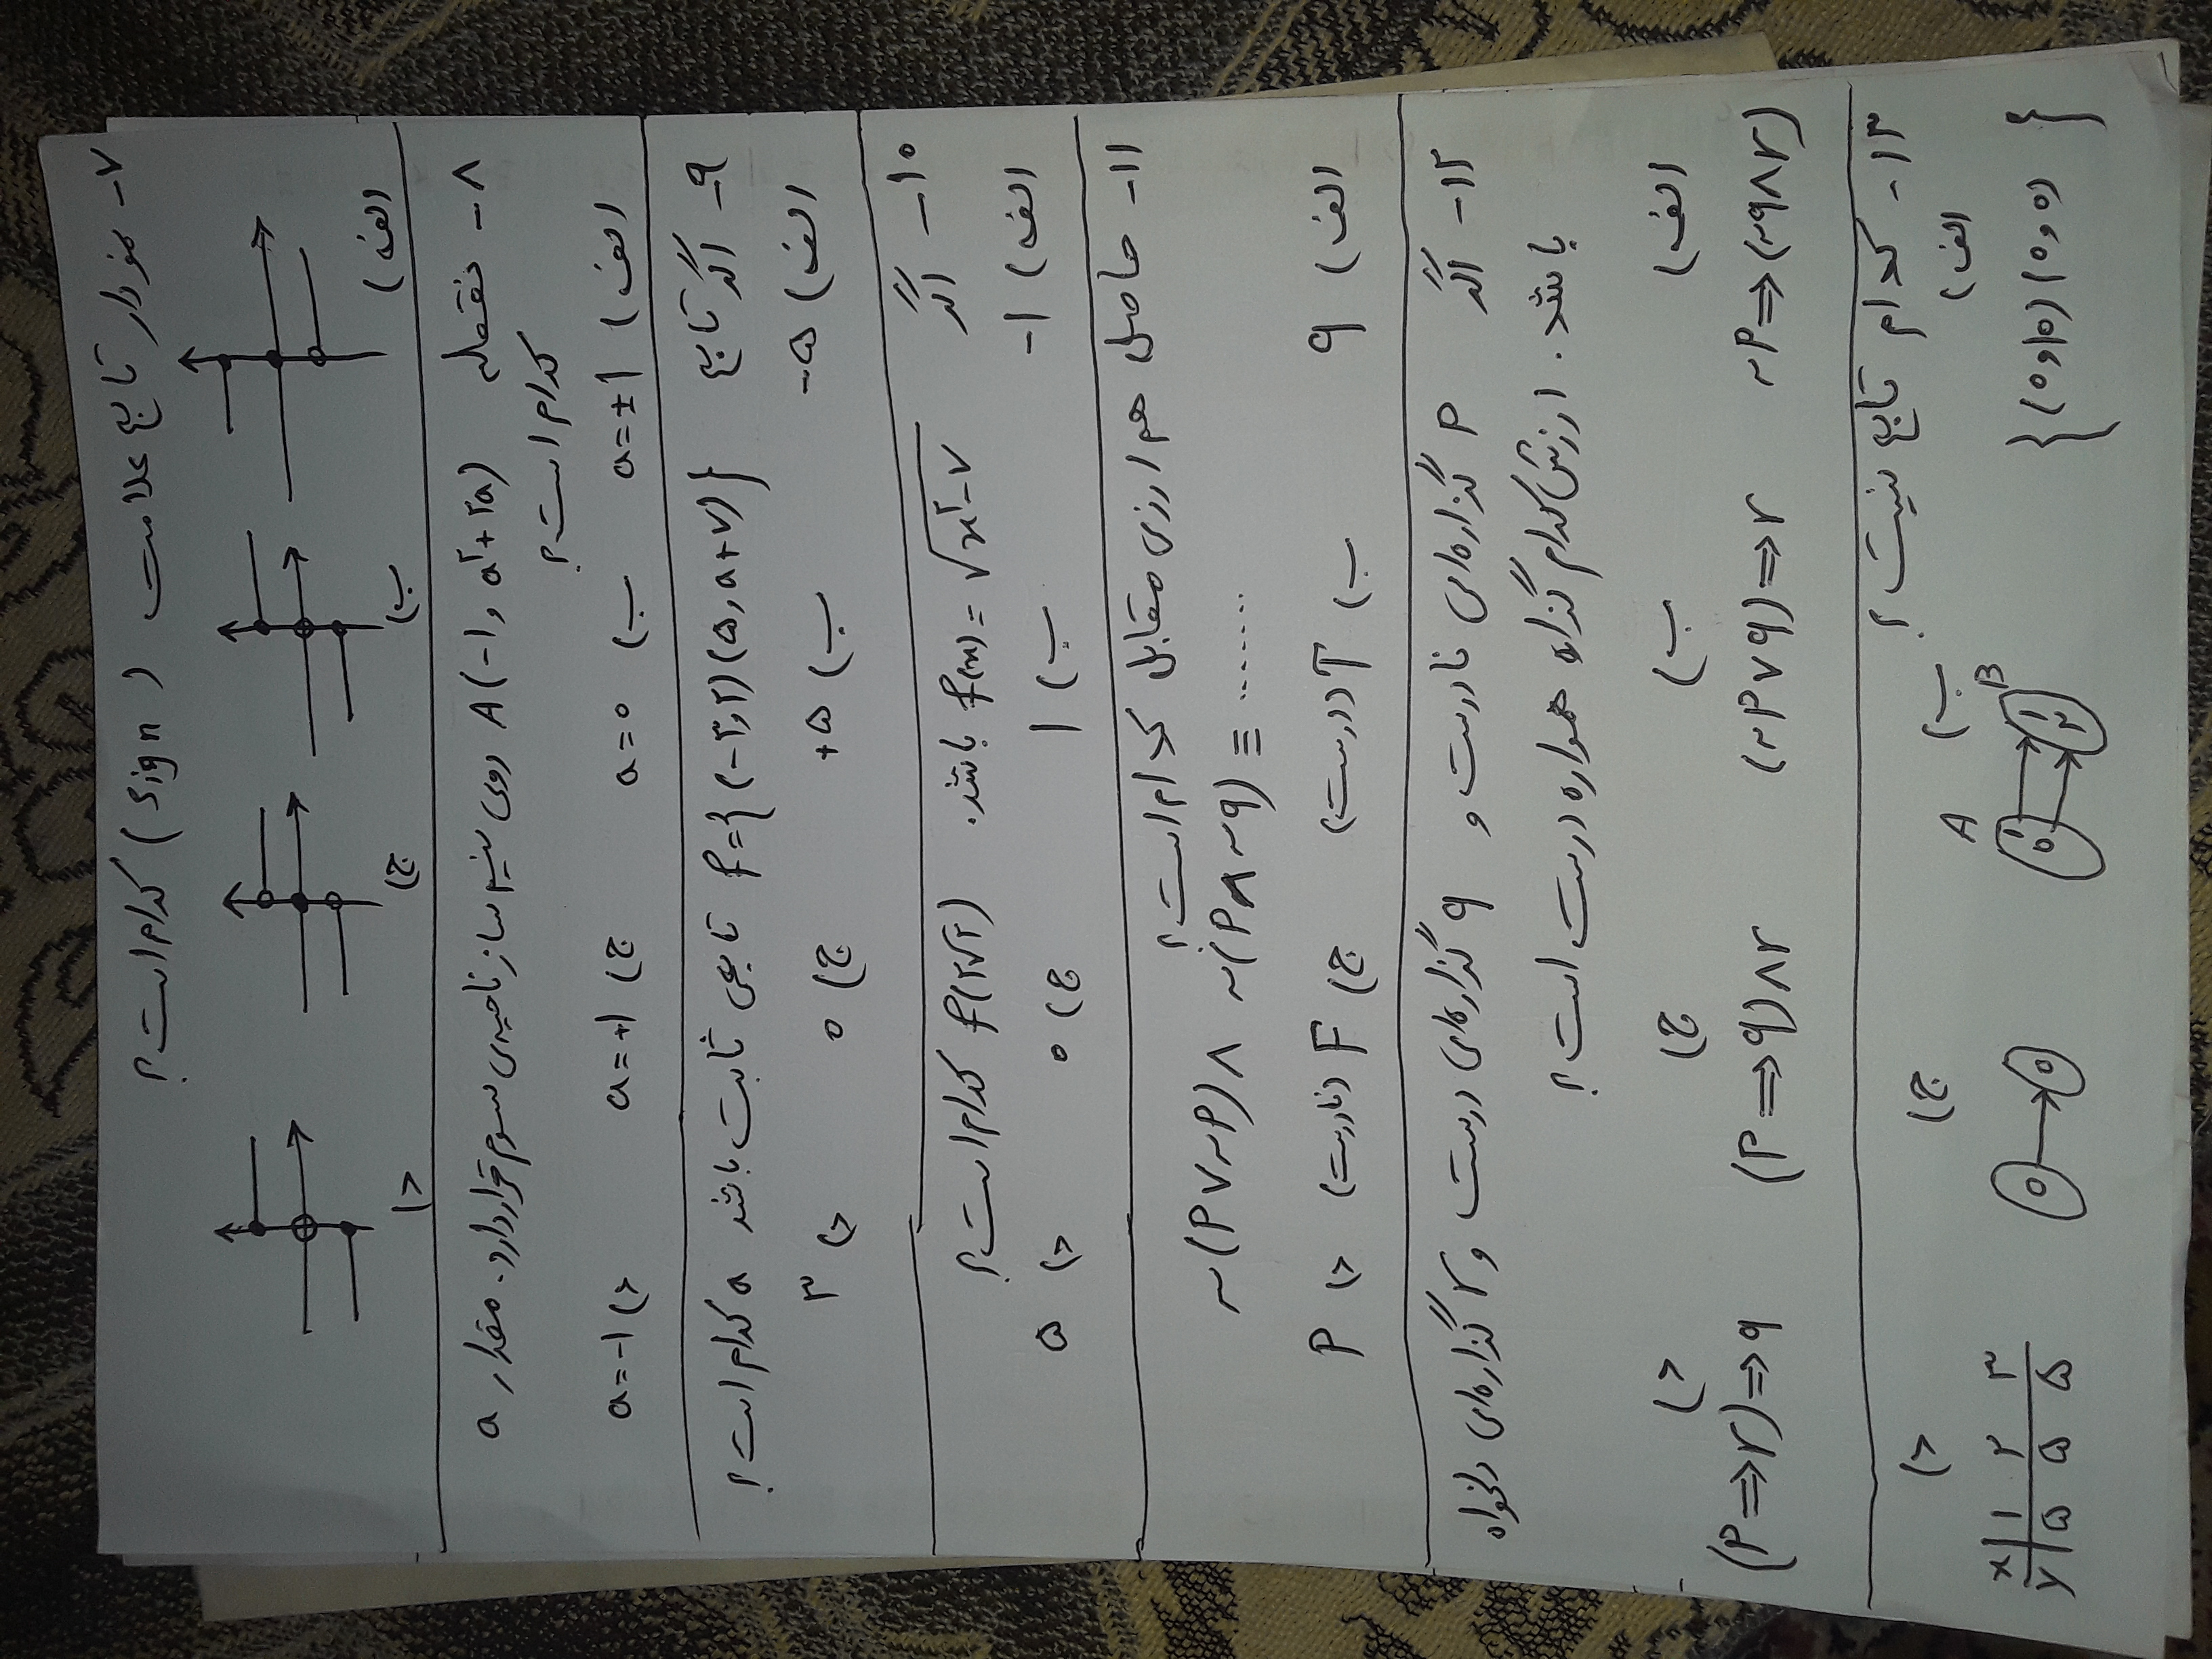 ۷- نمودار تابع علامت (sign) کدام است؟
الف) ب) ج) د)
۸- نقطه A(-۱, a²+۲a) روی نیمساز ناحیه‌ی سوم قرار دارد. مقدار a
کدام است؟
الف) a=±۱ ب) a=۰ ج) a=+۱ د) a=-۱
۹- اگر تابع f={(-۳,۲)(۵,a+۷)} تابعی ثابت باشد a کدام است؟
الف) -۵ ب) +۵ ج) ۰ د) ۳
۱۰- اگر f(x)=√x²-۷ باشد. f(۲√۲) کدام است؟
الف) -۱ ب) ۱ ج) ۰ د) ۵
۱۱- حاصل هم ارزی مقابل کدام است؟
~(P∨~P)∧ ~(P∧~q)≡ .......
الف) q ب) T (درست) ج) F (نادرست) د) P
۱۲- اگر P گزاره‌ای نادرست و q گزاره‌ای درست و r گزاره‌ای دلخواه
باشد. ارزش کدام گزاره همواره درست است؟
الف) ب) ج) د)
~P⇒(~q∧r) (~P∨q)⇒r (P⇒q)∧r (P⇒r)⇒q
۱۳- کدام تابع نیست؟
الف) ب) ج) د)
{(۰,۱۰)(۰,۰)}
A B
۱ ۱
۰ ۲
۰ ۰
x ۱ ۲ ۳
y ۵ ۵ ۵